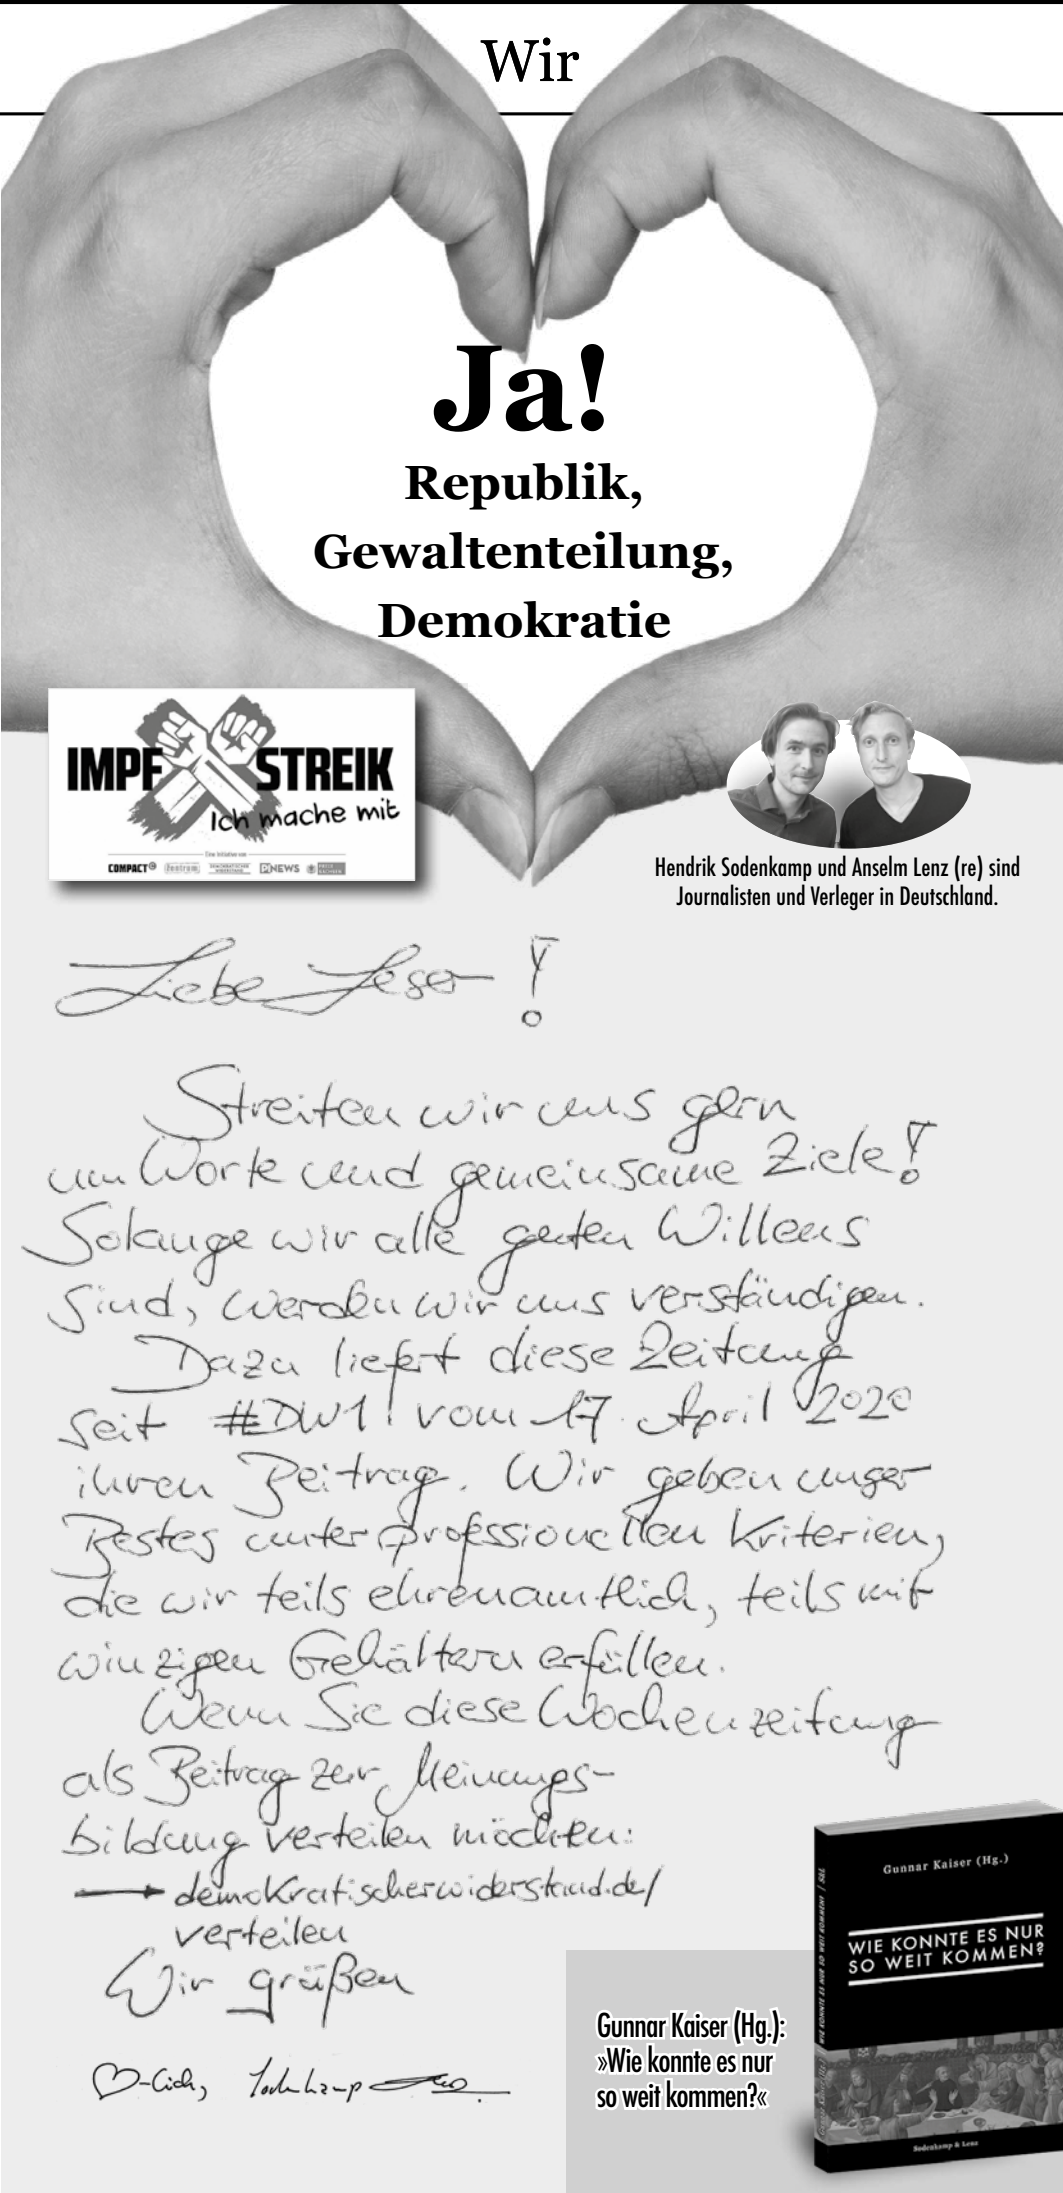 Wir
Ja!
Republik,
Gewaltenteilung,
Demokratie
IMPF STREIK
Ich mache mit
Eine Initiative von
COMPACT Zentrum DEMOKRATISCHER WIDERSTAND PI NEWS FREIE SACHSEN
Hendrik Sodenkamp und Anselm Lenz (re) sind
Journalisten und Verleger in Deutschland.
Liebe Leser!
Streiten wir uns gern
um Worte und gemeinsame Ziele!
Solange wir alle guten Willens
sind, werden wir uns verständigen.
Dazu liefert diese Zeitung
seit #DW1! vom 17. April 2020
ihren Beitrag. Wir geben unser
Bestes unter professionellen Kriterien,
die wir teils ehrenamtlich, teils mit
winzigen Gehältern erfüllen.
Wenn Sie diese Wochenzeitung
als Beitrag zur Meinungs-
bildung verteilen möchten:
→ demokratischerwiderstand.de/
verteilen
Wir grüßen
♡-lich, Sodenkamp
Gunnar Kaiser (Hg.)
WIE KONNTE ES NUR
SO WEIT KOMMEN?
Sodenkamp & Lenz
Gunnar Kaiser (Hg.):
»Wie konnte es nur
so weit kommen?«